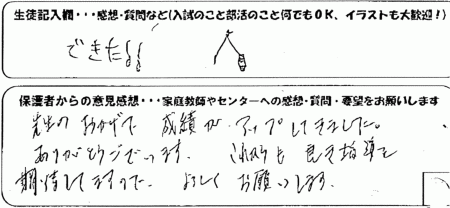 生徒記入欄・・・感想・質問など(入試のこと部活のこと何でもOK、イラストも大歓迎！)
できたよ!!
保護者からの意見感想・・・家庭教師やセンターへの感想・質問・要望をお願いします
先生のおかげで 成績が アップしてきました。
ありがとうございます。 これからも 良き指導を
期待してますので、よろしく お願いします。